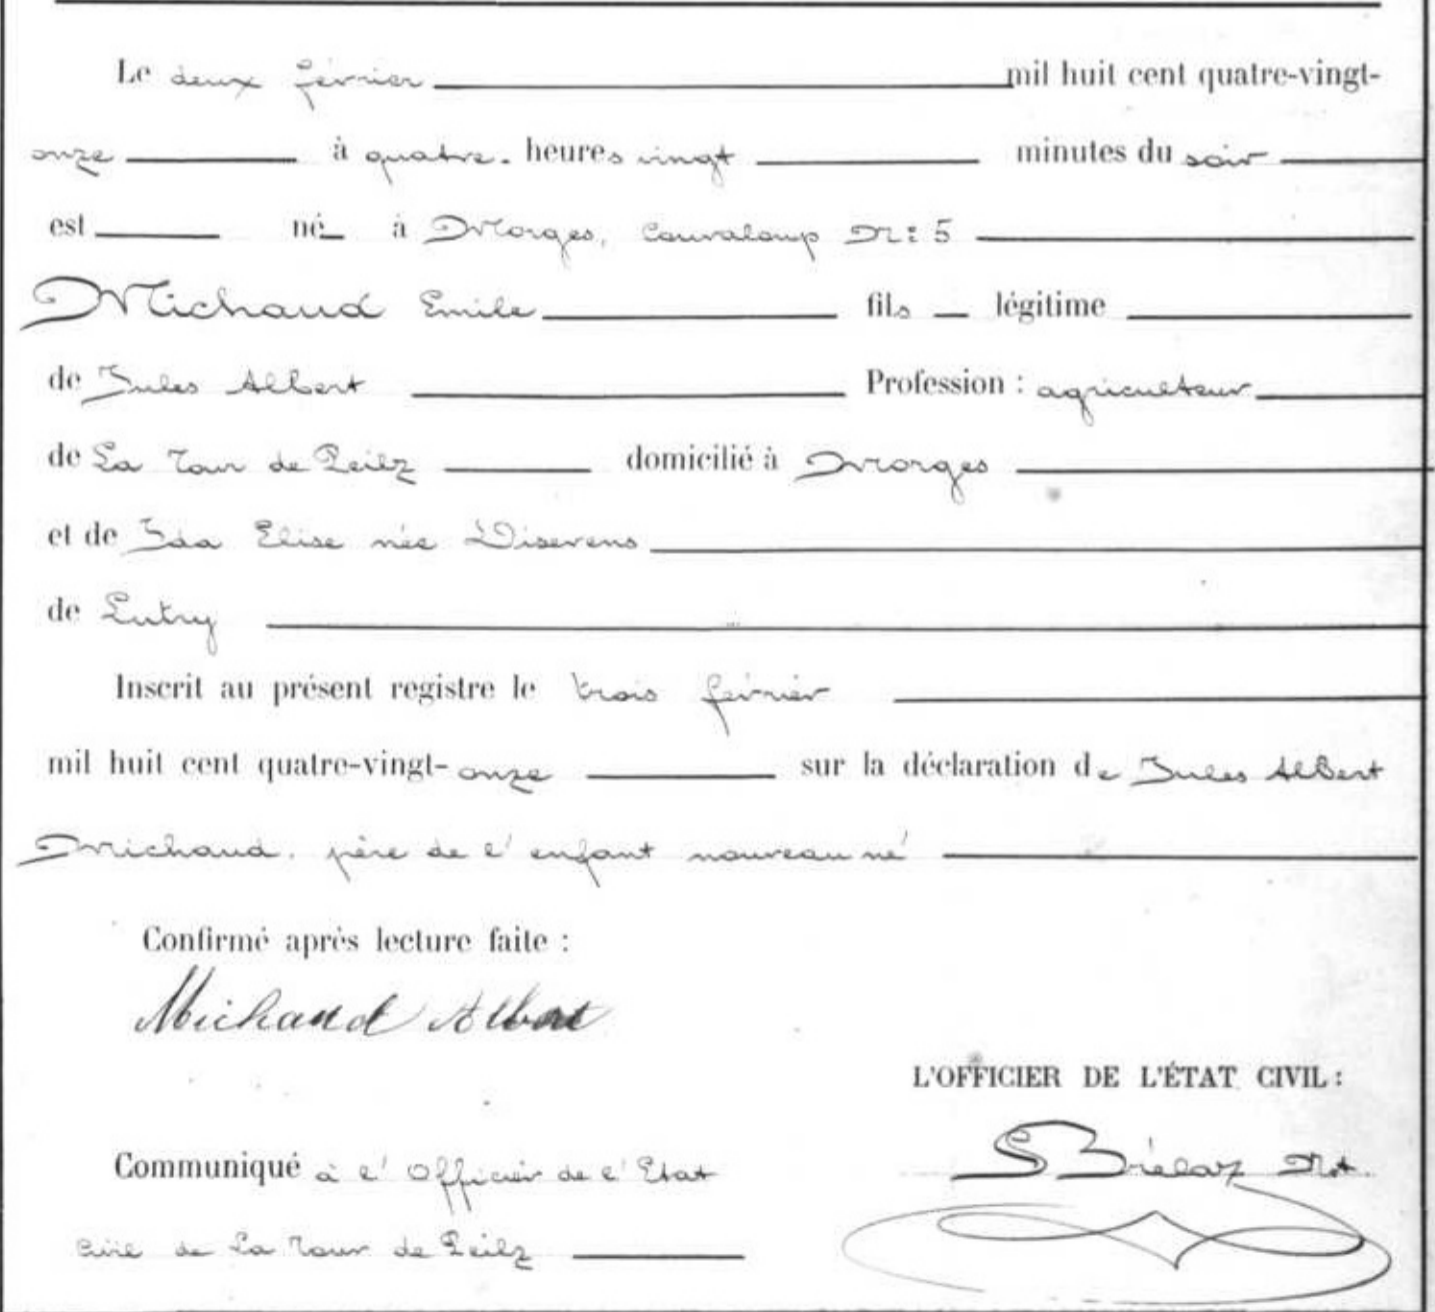 Le deux février mil huit cent quatre-vingt-
onze à quatre. heures vingt minutes du soir
est né à Morges, Couvaloup N: 5
Michaud Emile fils légitime
de Jules Albert Profession : agriculteur
de La Tour de Peilz domicilié à Morges
et de Ida Elise née Diserens
de Lutry
Inscrit au présent registre le trois février
mil huit cent quatre-vingt-onze sur la déclaration de Jules Albert
Michaud, père de l'enfant nouveau né
Confirmé après lecture faite :
Michaud Albert
L'OFFICIER DE L'ÉTAT CIVIL :
Communiqué à l'Officier de l'Etat
Civil de La Tour de Peilz